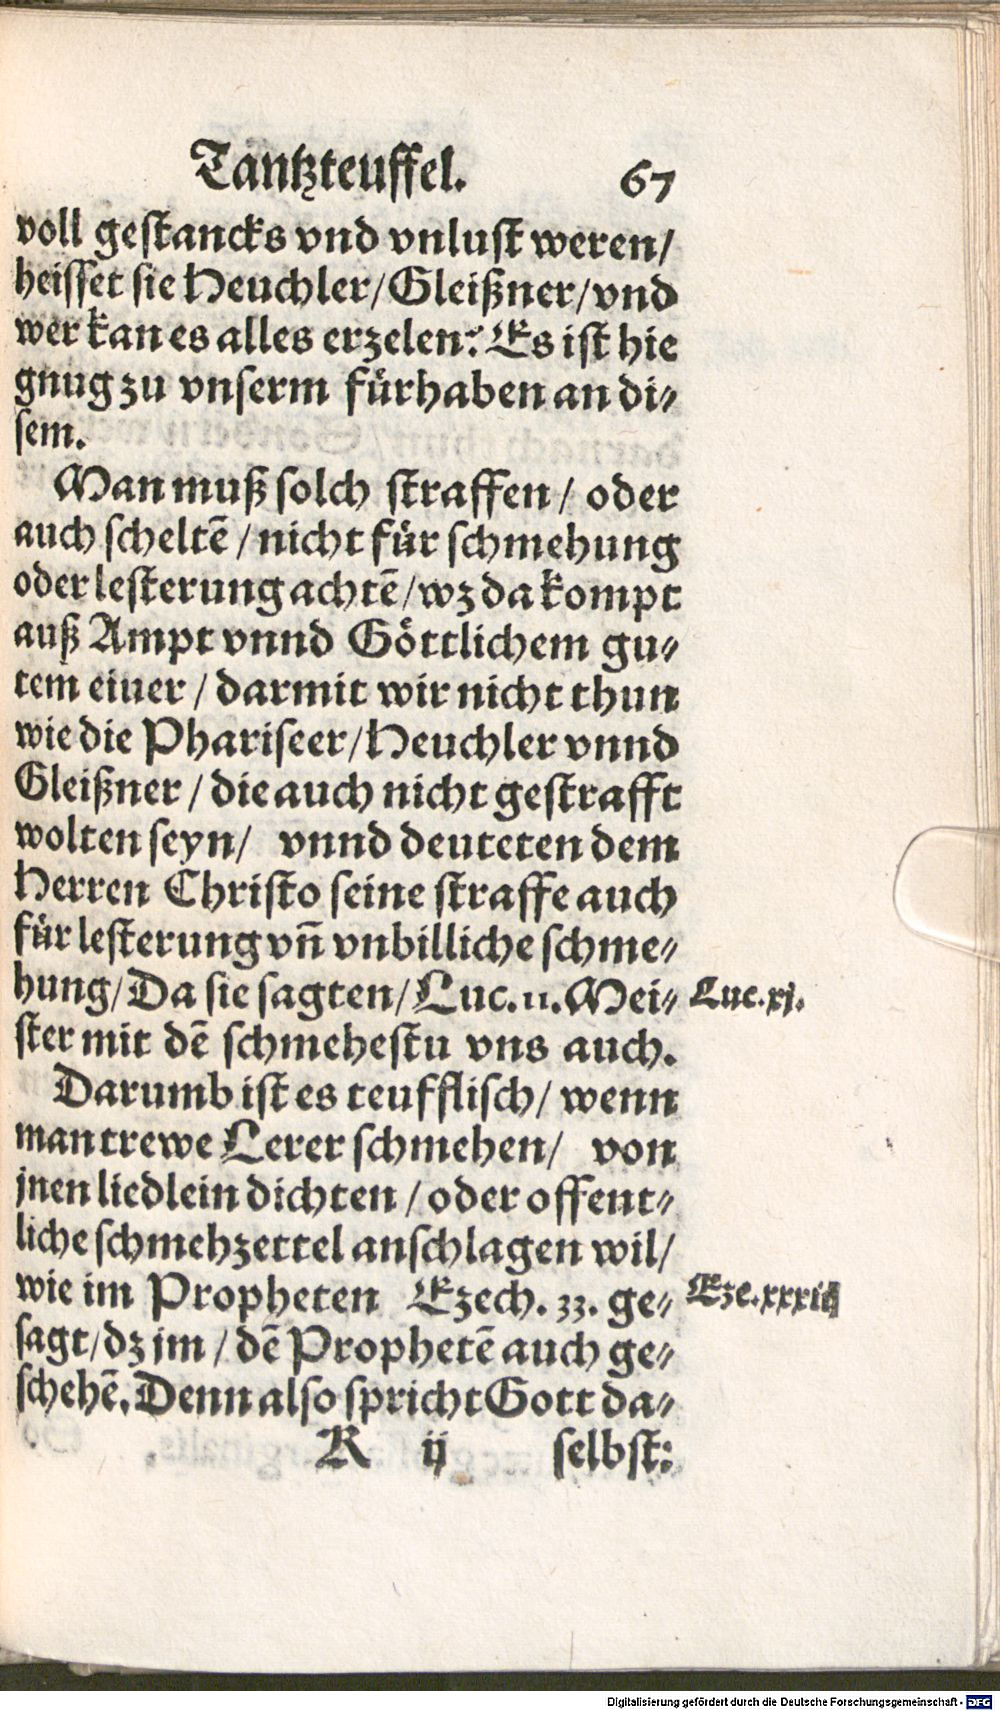 Tantzteuffel. 67
voll gestancks vnd vnlust weren/
heisset sie Heuchler/Gleißner/vnd
wer kan es alles erzelen? Es ist hie
gnug zu vnserm fürhaben an di-
sem.
Man muß solch straffen/ oder
auch scheltē/nicht für schmehung
oder lesterung achtē/wz da kompt
auß Ampt vnnd Göttlichem gu-
tem eiuer/darmit wir nicht thun
wie die Phariseer/Heuchler vnnd
Gleißner/die auch nicht gestrafft
wolten seyn/ vnnd deuteten dem
Herren Christo seine straffe auch
für lesterung vñ vnbilliche schme-
hung/Da sie sagten/Luc.11.Mei- Luc.xj.
ster mit dē schmehestu vns auch.
Darumb ist es teufflisch/wenn
man trewe Lerer schmehen/ von
jnen liedlein dichten/oder offent-
liche schmehzettel anschlagen wil/
wie im Propheten Ezech. 33. ge- Eze.xxxiij
sagt/dz jm/dē Prophetē auch ge-
schehē. Denn also spricht Gott da-
R ij selbst:
Digitalisierung gefördert durch die Deutsche Forschungsgemeinschaft - DFG